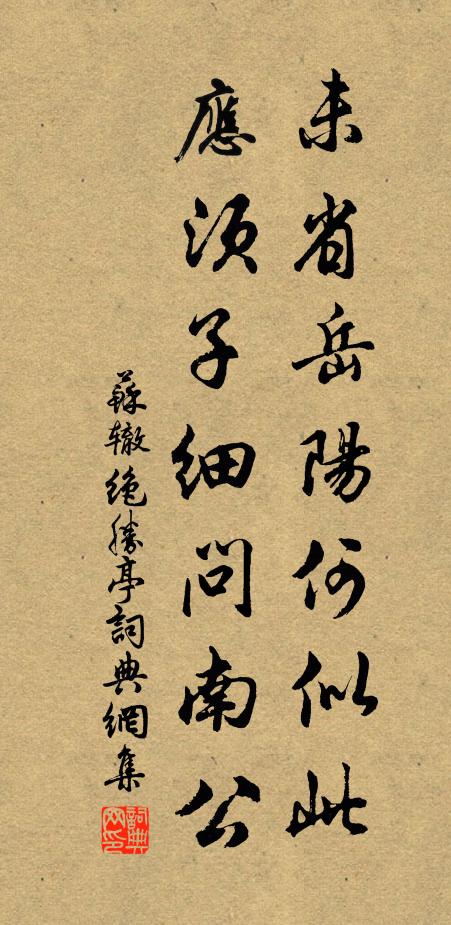 未省岳陽何似此
應須子細問南公
蘇辙絶勝亭詞典網集
詞典网印